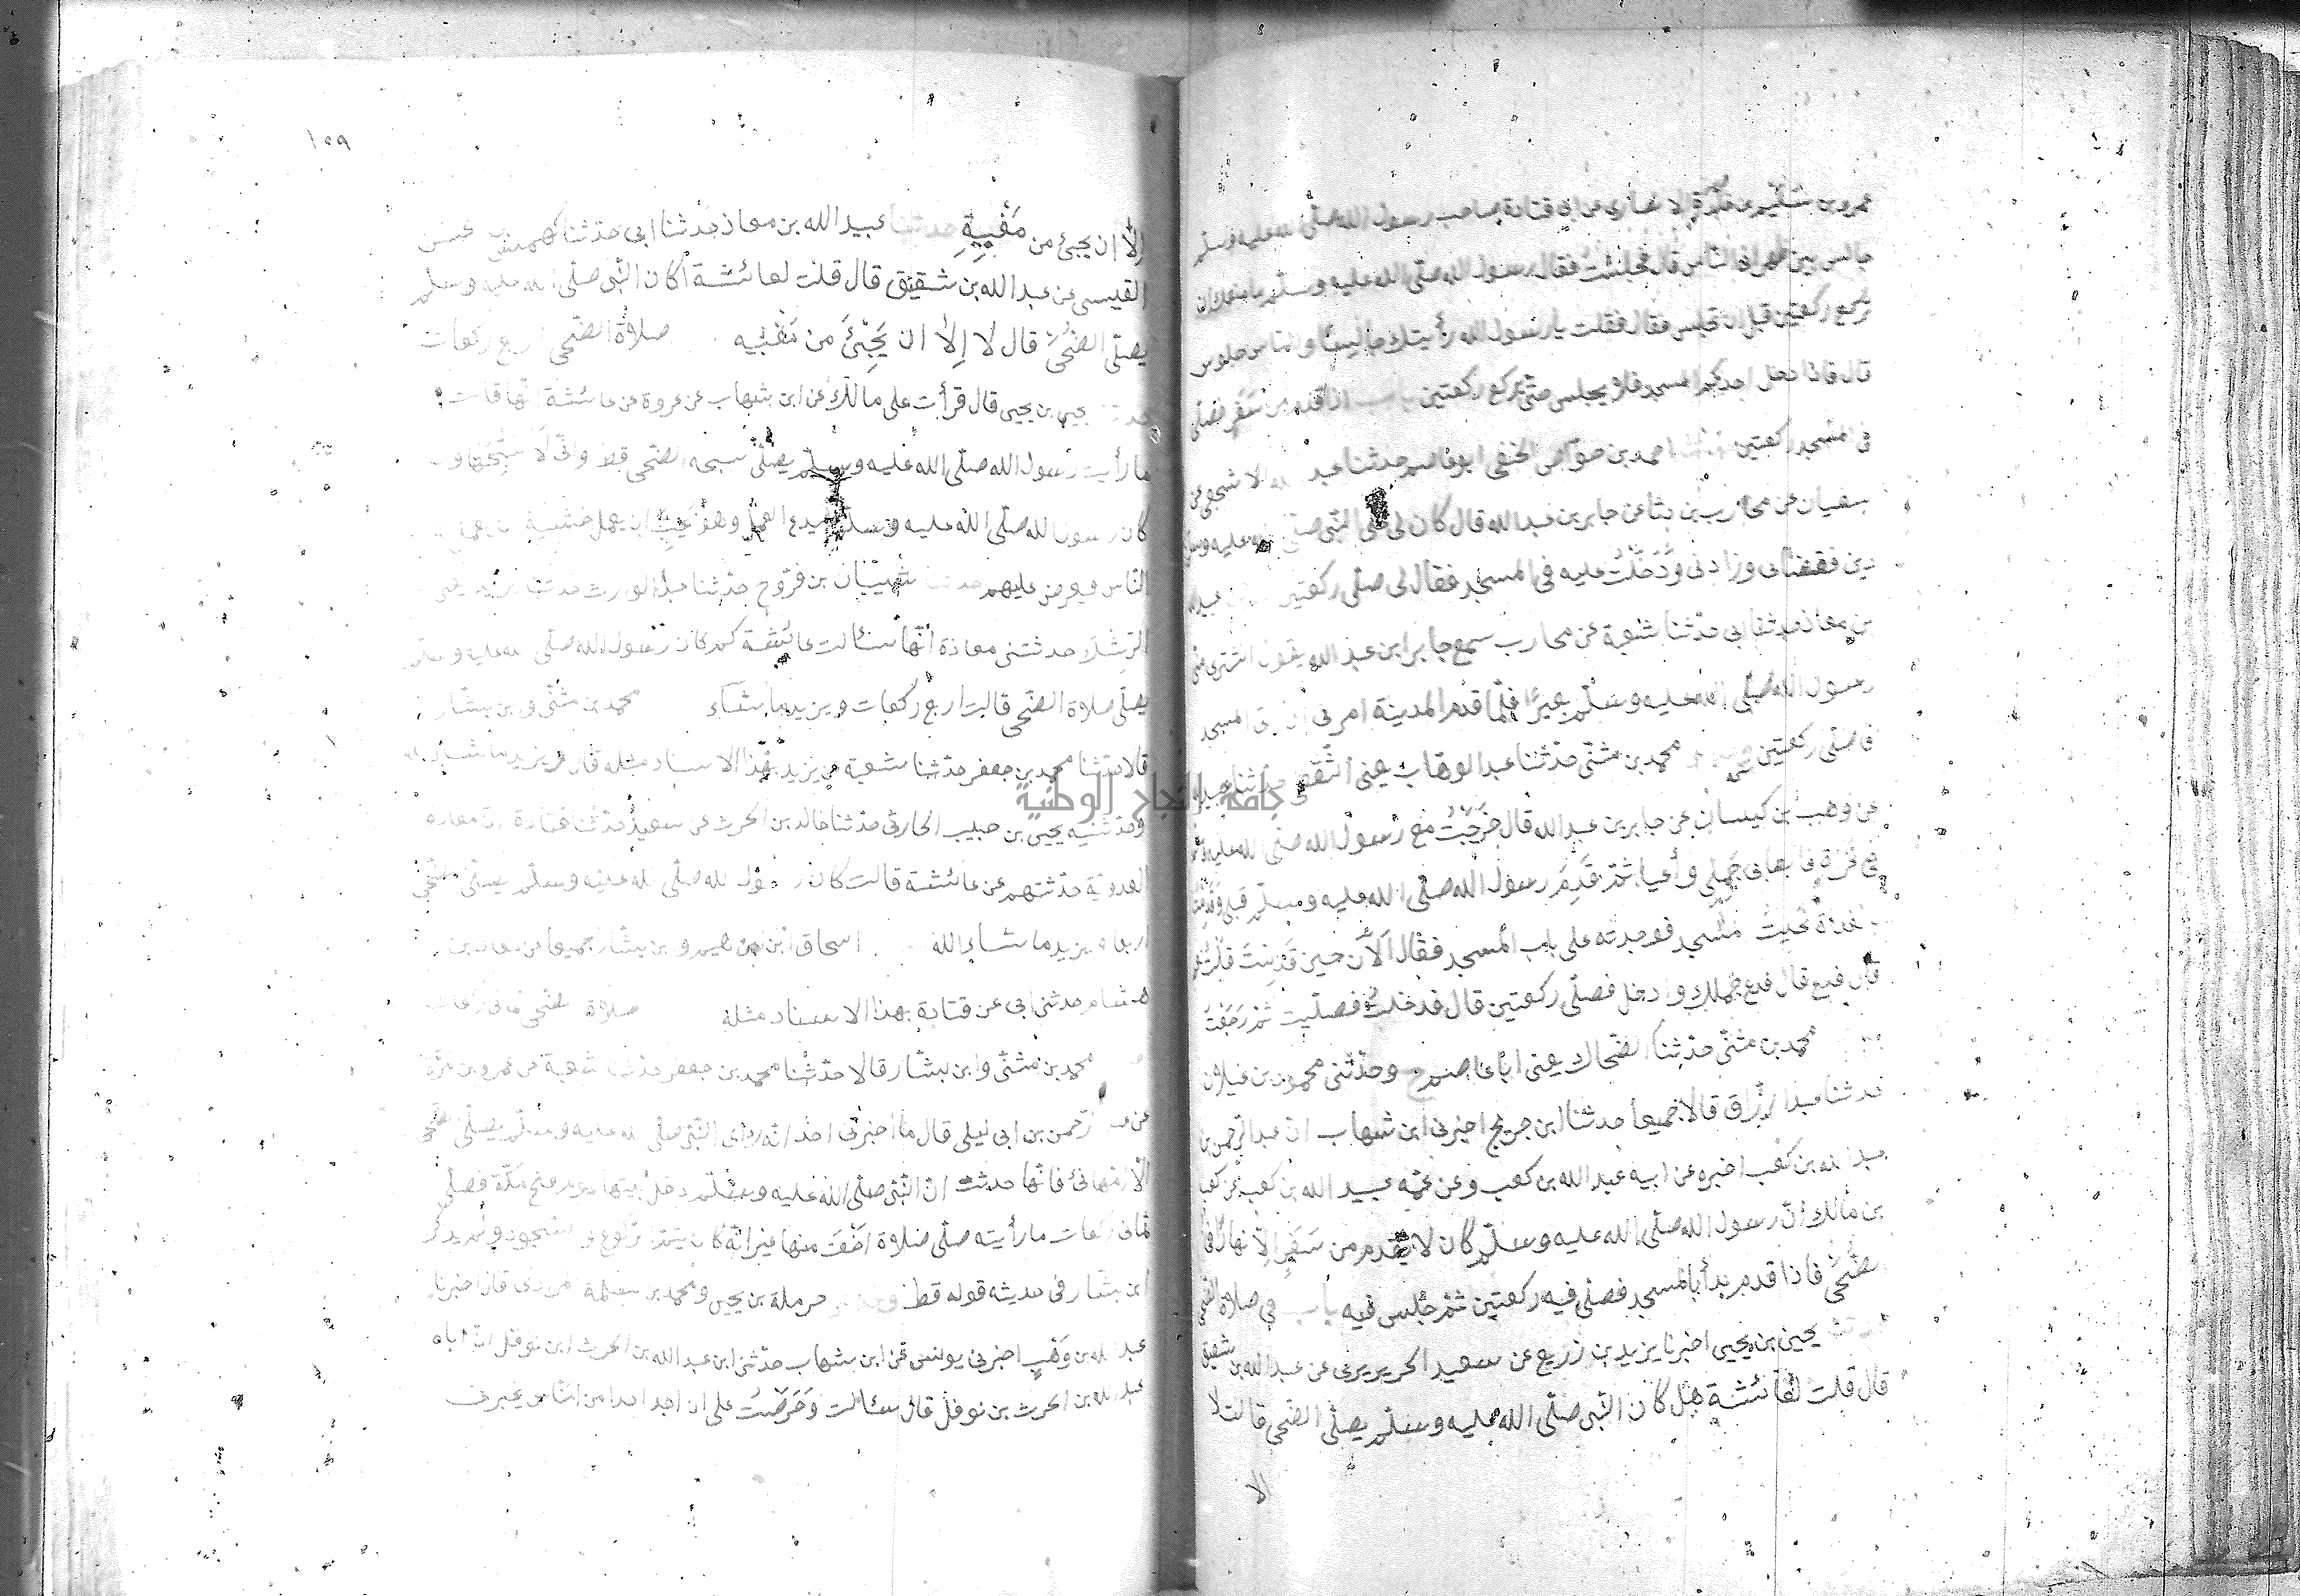 عمرو بن سليم بن خلدة الانصاري عن ابي قتادة صاحب رسول الله صلى الله عليه وسلم
جالس بين ظهراني الناس قال فجلست فقال رسول الله صلى الله عليه وسلم ما منعك ان
تركع ركعتين قبل ان تجلس فقال فقلت يا رسول الله رأيتك جالسًا والناس جلوس
قال فاذا دخل احدكم المسجد فلا يجلس حتى يركع ركعتين باب اذا قدم من سفر فصلى
في المسجد ركعتين احمد بن جوّاس الحنفي ابو عاصم حدثنا عبد الله الاشجعي عن
سفيان عن محارب بن دثار عن جابر بن عبد الله قال كان لي على النبي صلى الله عليه وسلم
دين فقضاني وزادني ودَخَلْتُ عليه في المسجد فقال لي صلى ركعتين عبيد الله
بن معاذ حدثنا ابي حدثنا شعبة عن محارب سمع جابر ابن عبد الله يقول اشترى منى
رسول الله صلى الله عليه وسلم بعيرًا فلمّا قدم المدينة امرني ان اتى المسجد
فاصلى ركعتين محمد بن مثنّى حدثنا عبد الوهاب يعنى الثقفى حدثنا عبيد الله
عن وهب بن كيسان عن جابر بن عبد الله قال خَرَجْتُ مع رسول الله صلى الله عليه وسلم
في غزاة فابطا بى جَمَلِي وأعيا ثم قَدِمَ رسول الله صلى الله عليه وسلم قبلى وَقَدِمْتُ
بالغداة فجئتُ المسجد فوجدته على باب المسجد فقال اَلْآن حين قَدِمْتَ قلت نعم
قال فدع قال فدع جملك وادخل فصلّى ركعتين قال فدخلتُ فصلّيت ثم رَجَعْتُ
محمد بن مثنّى حدثنا الضحاك يعنى ابا عاصم ح وحدّثنى محمود بن غيلان
حدثنا عبد الرزاق قالا جميعا حدثنا ابن جريج اخبرنى ابن شهاب ان عبد الرحمن بن
عبد الله بن كعب اخبره عن ابيه عبد الله بن كعب وعن عمّه عبيد الله بن كعب عن كعب
بن مالك انّ رسول الله صلّى الله عليه وسلم كان لا يقدم من سَفَرٍ الّا نهارًا في
الضُّحى فاذا قدم بدأ بالمسجد فصلّى فيه ركعتين ثم جلس فيه باب في صلاة الضّحى
يحيى بن يحيى اخبرنا يزيد بن زريع عن سعيد الجريرى عن عبد الله بن شقيق
قال قلت لعائشة هل كان النّبى صلّى الله عليه وسلم يصلّى الضّحى قالت لا
الا
١٥٩
إلّا ان يجئ من مَغْيبِهِ حدثنا عبيد الله بن معاذ حدثنا ابى حدثنا كهمس بن حسن
القيسى عن عبد الله بن شقيق قال قلت لعائشة أكان النّبى صلّى الله عليه وسلم
يصلّى الضّحىُ قال لا إلّا ان يَجِئَ من مَغيبِه صلاة الضّحى اربع ركعات
حدثنا يحيى بن يحيى قال قرأت على مالك عن ابن شهاب عن عروة عن عائشة انّها قالت
ما رأيت رسول الله صلّى الله عليه وسلم يصلّى سبحة الضّحى قط وانّى لأسبّحها و
كان رسول الله صلّى الله عليه وسلم ليدع العمل وهو يُحِبُّ ان يعمل خشية ان يعمل به
النّاس فيفرض عليهم حدثنا شيبان بن فرّوخ حدثنا عبد الوارث حدثنا يزيد يعنى
الرّشك حدثتنى معاذة أنّها سئالت عائشة كم كان رسول الله صلّى الله عليه وسلم
يصلّى صلاة الضّحى قالت اربع ركعات ويزيد ما شاء محمد بن مثنّى وابن بشّار
قالا حدثنا محمد بن جعفر حدثنا شعبة عن يزيد بهذا الاسناد مثله قال ويزيد ما شاء الله
وحدثنيه يحيى بن حبيب الحارثى حدثنا خالد بن الحرث عن سعيد حدثنا قتادة ان معاذة
العدوية حدثتهم عن عائشة قالت كان رسول الله صلّى الله عليه وسلم يصلّى الضّحى
اربعا ويزيد ما شاء الله اسحاق ابن ابرهيم وابن بشّار جميعا عن معاذ بن
هشام حدثنى ابى عن قتادة بهذا الاسناد مثله صلاة الضّحى ثمانى ركعات
محمد بن مثنّى وابن بشّار قالا حدّثنا محمد بن جعفر حدثنا شعبة عن عمرو بن مرّة
عن عبد الرّحمن بن ابى ليلى قال ما اخبرنى احد انّه رأى النّبى صلّى الله عليه وسلم يصلّى الضّحى
الّا امّ هانئ فانّها حدثت انّ النّبى صلّى الله عليه وسلم دخل بيتها يوم فتح مكّة فصلّى
ثمانى ركعات ما رأيته صلّى صلاة اخفّ منها غير انّه كان يتمّ الرّكوع والسّجود ولم يذكر
ابن بشّار فى حديثه قوله قط وحدثنى حرملة بن يحيى ومحمد بن سلمة المرادى قالا اخبرنا
عبد الله بن وَهْبٍ اخبرنى يونس عن ابن شهاب حدّثنى ابن عبد الله بن الحرث ابن نوفل انّ اباه
عبد الله بن الحرث بن نوفل قال سئالت وَحَرَصْتُ على ان اجد احدا من النّاس يخبرنى
جامعة النجاح الوطنية